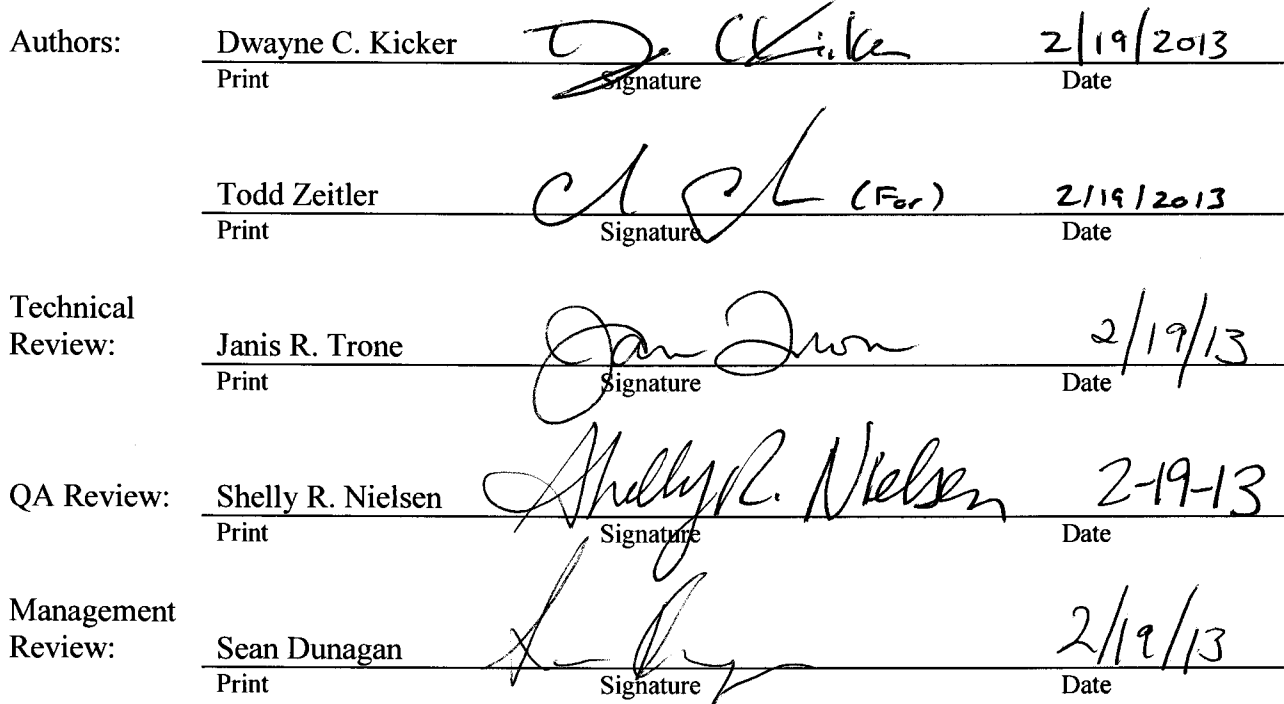 Authors: Dwayne C. Kicker D C Kicker 2/19/2013
Print Signature Date
Todd Zeitler (For) 2/19/2013
Print Signature Date
Technical
Review: Janis R. Trone Jan Trone 2/19/13
Print Signature Date
QA Review: Shelly R. Nielsen Shelly R. Nielsen 2-19-13
Print Signature Date
Management
Review: Sean Dunagan 2/19/13
Print Signature Date